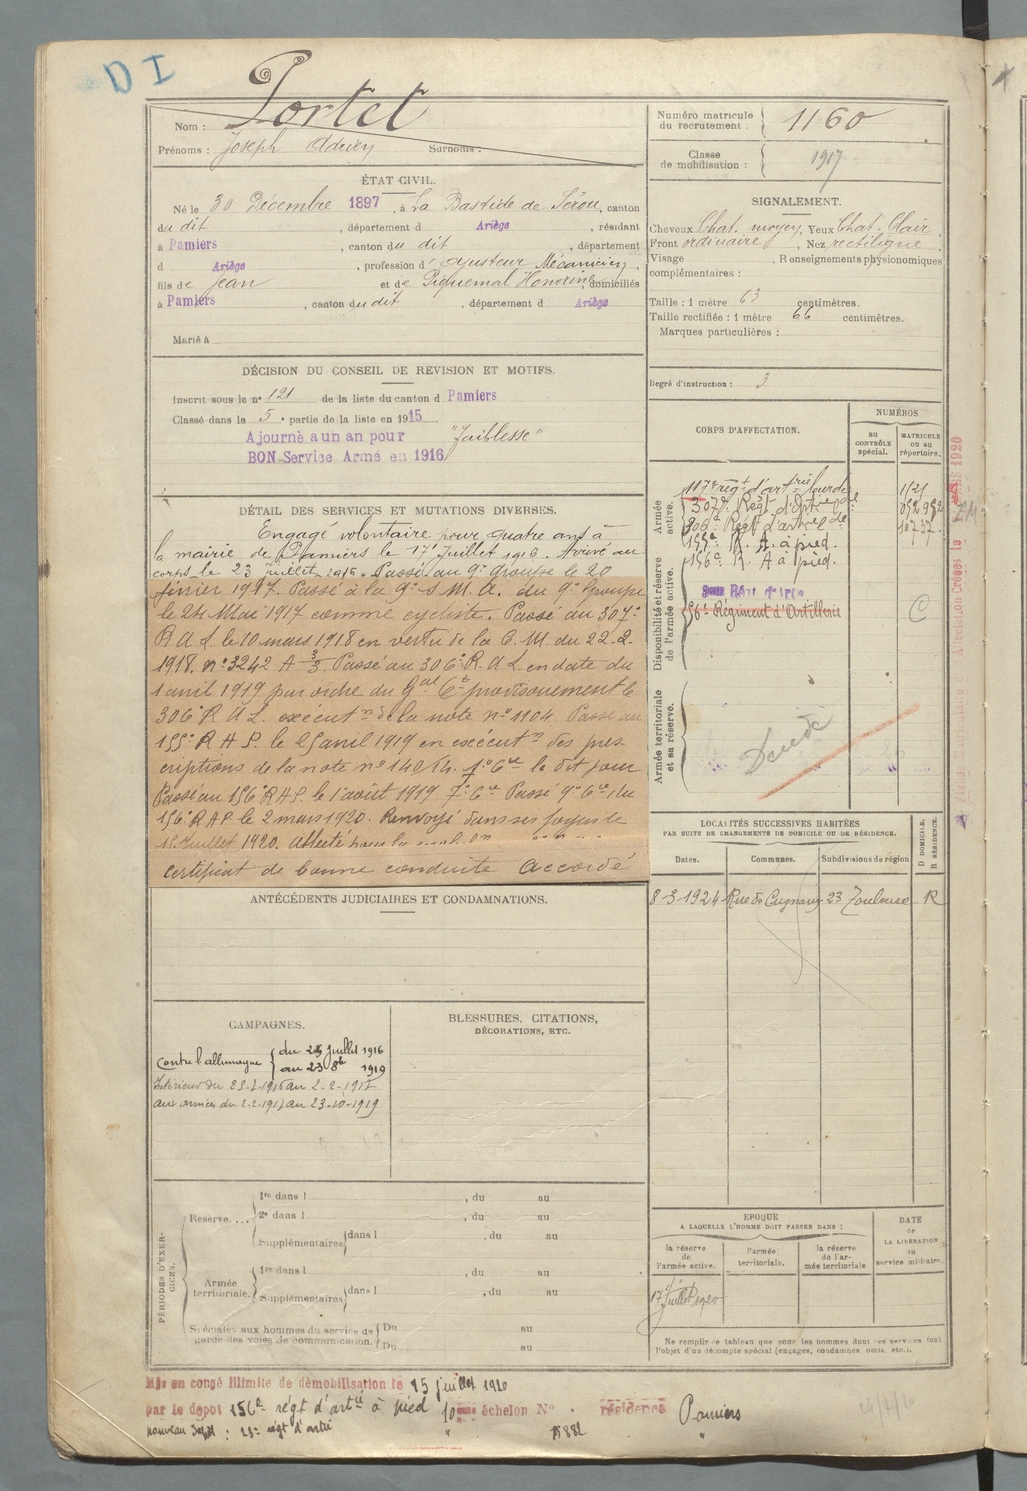 D I
Portet
Nom :
Prénoms : Joseph Adrien Surnoms :
ÉTAT CIVIL.
Né le 30 Décembre 1897, à La Bastide de Sérou, canton
du dit, département d Ariège, résidant
à Pamiers, canton du dit, département
d Ariège, profession d' ajusteur Mécanicien,
fils de Jean et de Piquemal Honorine, domiciliés
à Pamiers, canton du dit, département d Ariège
Marié à
DÉCISION DU CONSEIL DE REVISION ET MOTIFS.
Inscrit sous le n° 121 de la liste du canton d Pamiers
Classé dans la 5e partie de la liste en 1915.
Ajourné a un an pour "Faiblesse"
BON Service Armé en 1916
DÉTAIL DES SERVICES ET MUTATIONS DIVERSES.
Engagé volontaire pour quatre ans à
la mairie de Pamiers le 17 juillet 1916. Arrivé au
corps le 23 juillet 1916. Passé au 9e Groupe le 20
février 1917. Passé à la 9e S.M.A. du 9e Groupe
le 24 Mai 1917 comme cycliste. Passé au 307e
R A L le 10 mars 1918 en vertu de la C. M. du 22-2
1918. n° 3242 A 3/3. Passé au 306e R.A.L en date du
1 avril 1919 par ordre du Gal Ct provisoirement le
306e R A L. exécutn de la note n° 1104. Passé au
155e R A P. le 25 avril 1919 en exécutn des pres-
criptions de la note n° 14054. 7e Cie le dit jour
Passé au 156e R A P. le 1er août 1919 7e Cie Passé 9e Cie du
156e R A P le 2 mars 1920. Renvoyé dans ses foyers le
15 Juillet 1920. Affecté
certificat de bonne conduite Accordé
ANTÉCÉDENTS JUDICIAIRES ET CONDAMNATIONS.
CAMPAGNES.
Contre l'allemagne { du 23 juillet 1916
au 23 8bre 1919
Intérieur du 23-7-1916 au 2-2-1917
aux armées du 2.2.1917 au 23-10-1919
BLESSURES, CITATIONS,
DÉCORATIONS, ETC.
PÉRIODES D'EXERCICES.
Réserve.... { 1re dans l , du au
2e dans l , du au
Supplémentaires { dans l , du au
Armée territoriale. { 1re dans l , du au
Supplémentaires { dans l , du au
Spéciales aux hommes du service de garde des voies de communication. { Du au
Du au
Numéro matricule
du recrutement : { 1160
Classe
de mobilisation : { 1917
SIGNALEMENT.
Cheveux Chat. moyen, Yeux Chat. Clair,
Front ordinaire, Nez rectiligne,
Visage , Renseignements physionomiques
complémentaires :
Taille : 1 mètre 63 centimètres.
Taille rectifiée : 1 mètre 66 centimètres.
Marques particulières :
Degré d'instruction : 3
CORPS D'AFFECTATION.
NUMÉROS
au CONTRÔLE spécial.
MATRICULE ou au répertoire.
Armée active.
117e régt d'artrie lourde 1121
307e Régt d'Artrie Lde
306e Régt d'artrie Lde
155e R. A. à pied.
156e R. A à pied.
Disponibilité et réserve de l'armée active.
56e Régiment d'Artillerie C
Armée territoriale et sa réserve.
LOCALITÉS SUCCESSIVES HABITÉES
PAR SUITE DE CHANGEMENTS DE DOMICILE OU DE RÉSIDENCE.
Dates.
Communes.
Subdivisions de région
D DOMICILE.
R RÉSIDENCE.
8-3-1924 Rue de Cugnaux 23 Toulouse R
ÉPOQUE
A LAQUELLE L'HOMME DOIT PASSER DANS :
la réserve de l'armée active.
l'armée territoriale.
la réserve de l'armée territoriale.
DATE de LA LIBÉRATION au service militaire.
17 Juillet 1920
Ne remplir ce tableau que pour les hommes dont les services font
l'objet d'un décompte spécial (engagés, condamnés, omis, etc.).
Mis en congé illimité de démobilisation le 15 juillet 1920
par le dépôt 156e régt d'artie à pied 10eme échelon N° résidence Pamiers
nouveau dépôt : 23e régt d'artie